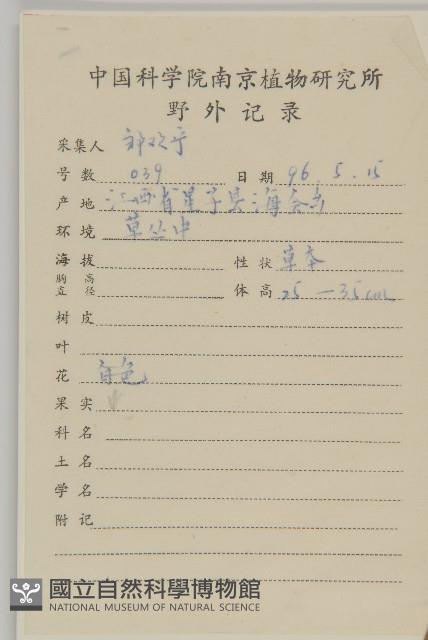 中国科学院南京植物研究所
野外记录
采集人
号数 039 日期 96.5.15
产地 江西省星子县海会
环境 草丛中
海拔 性状 草本
胸高直径 体高 25—35cm
树皮
叶
花 白色
果实
科名
土名
学名
附记
國立自然科學博物館
NATIONAL MUSEUM OF NATURAL SCIENCE